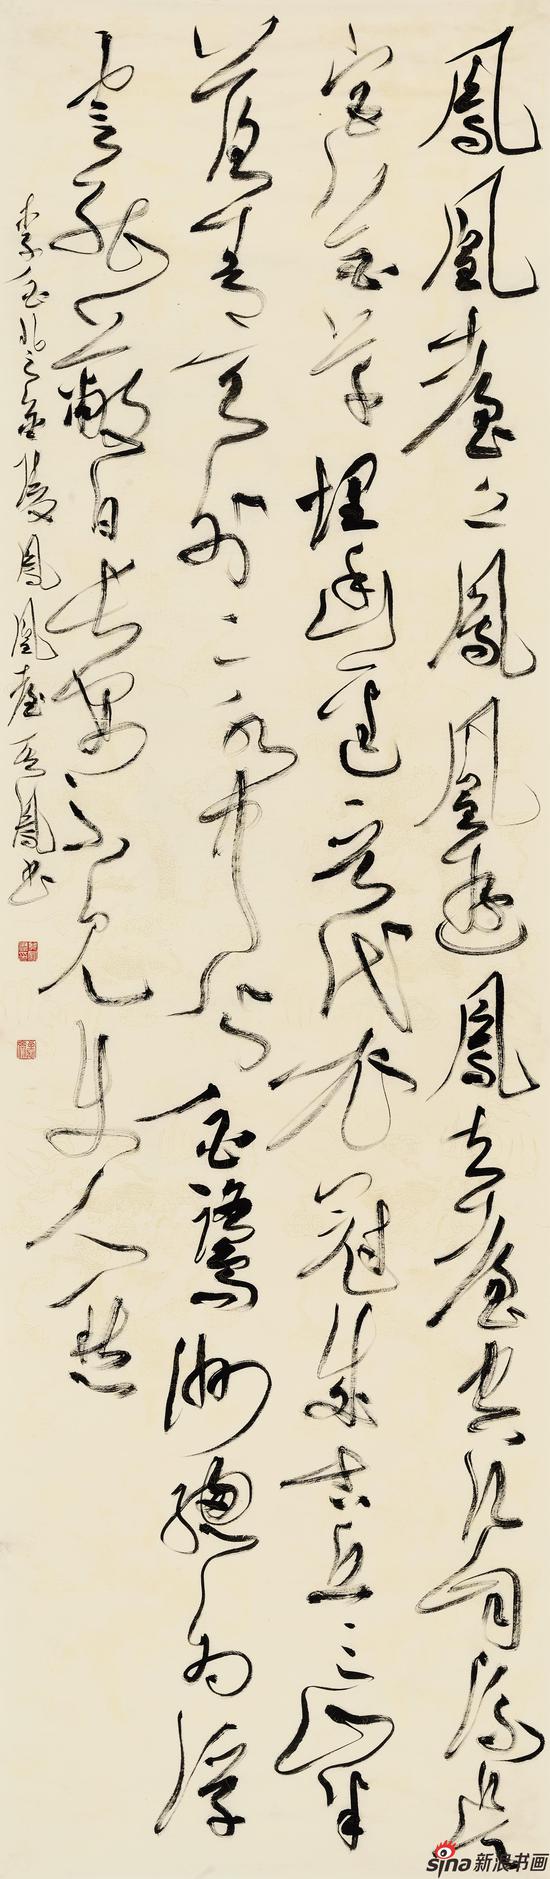 鳳凰臺上鳳凰遊鳳去臺空江自流吳
宮花草埋幽徑晉代衣冠成古丘三山半
落青天外二水中分白鷺洲總為浮
雲能蔽日長安不見使人愁
李白登金陵鳳凰臺 鳳書
sina新浪书画